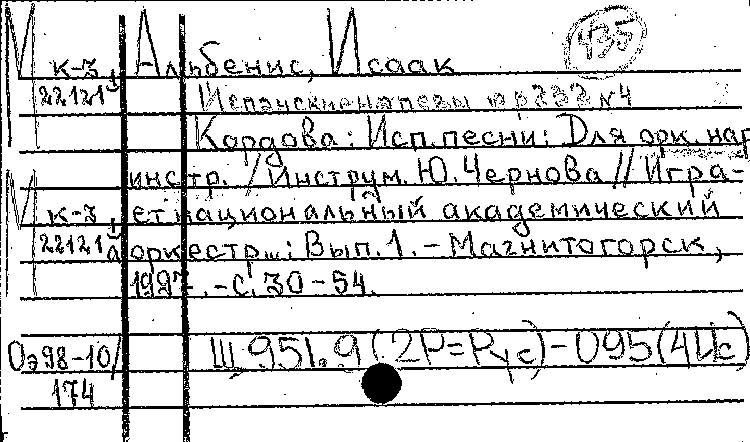 435
М к-3 Альбенис, Исаак
22121 Испанские напевы ор 232 №4
Кордова: Исп. песни: Для орк. нар
инстр. / Инструм. Ю. Чернова // Игра-
М к-3, ет национальный академический
22121 оркестр...: Вып. 1. - Магнитогорск,
1997. - С. 30-54.
Оэ98-10/ Щ 951.9(2Р=Рус)-095(4Ис)
174